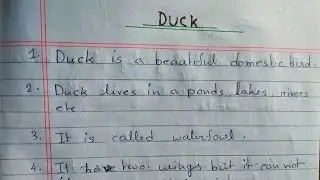 Duck
1. Duck is a beautiful domestic bird.
2. Duck lives in a ponds, lakes, rivers
etc.
3. It is called waterfowl.
4. It have two wings but it can not